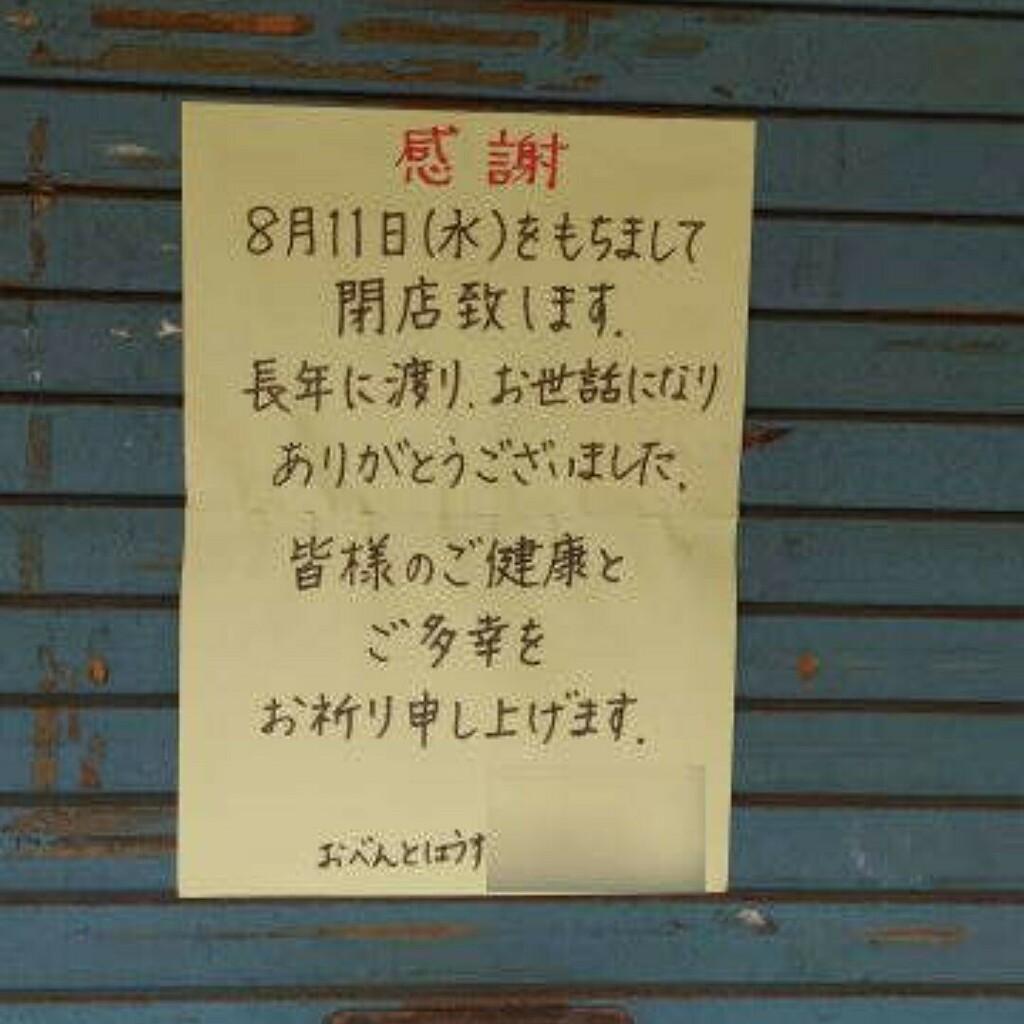 感謝
8月11日(水)をもちまして
閉店致します.
長年に渡り、お世話になり
ありがとうございました.
皆様のご健康と
ご多幸を
お祈り申し上げます.
おべんとはうす